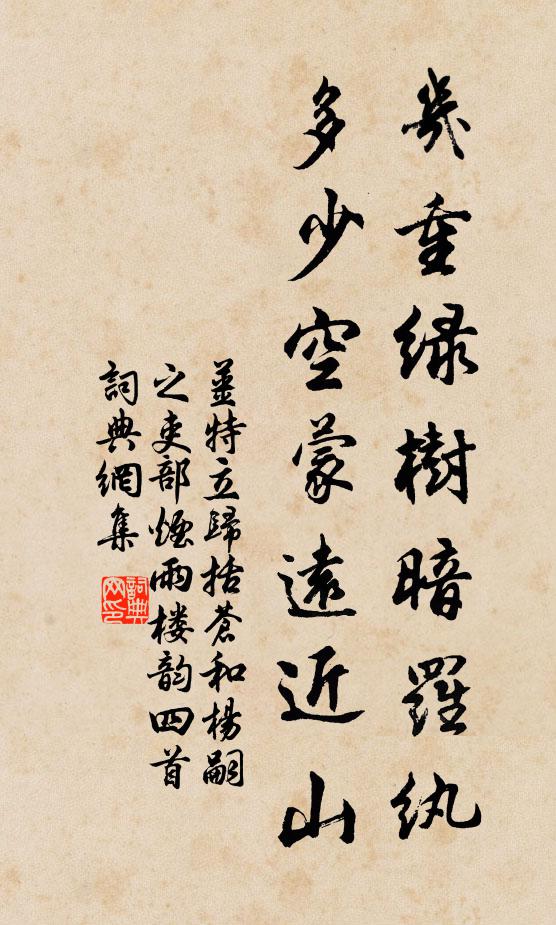 幾重綠樹暗羅紈
多少空蒙遠近山
姜特立歸括蒼和楊嗣
之吏部煙雨樓韵四首
詞典網集
詞典
网印